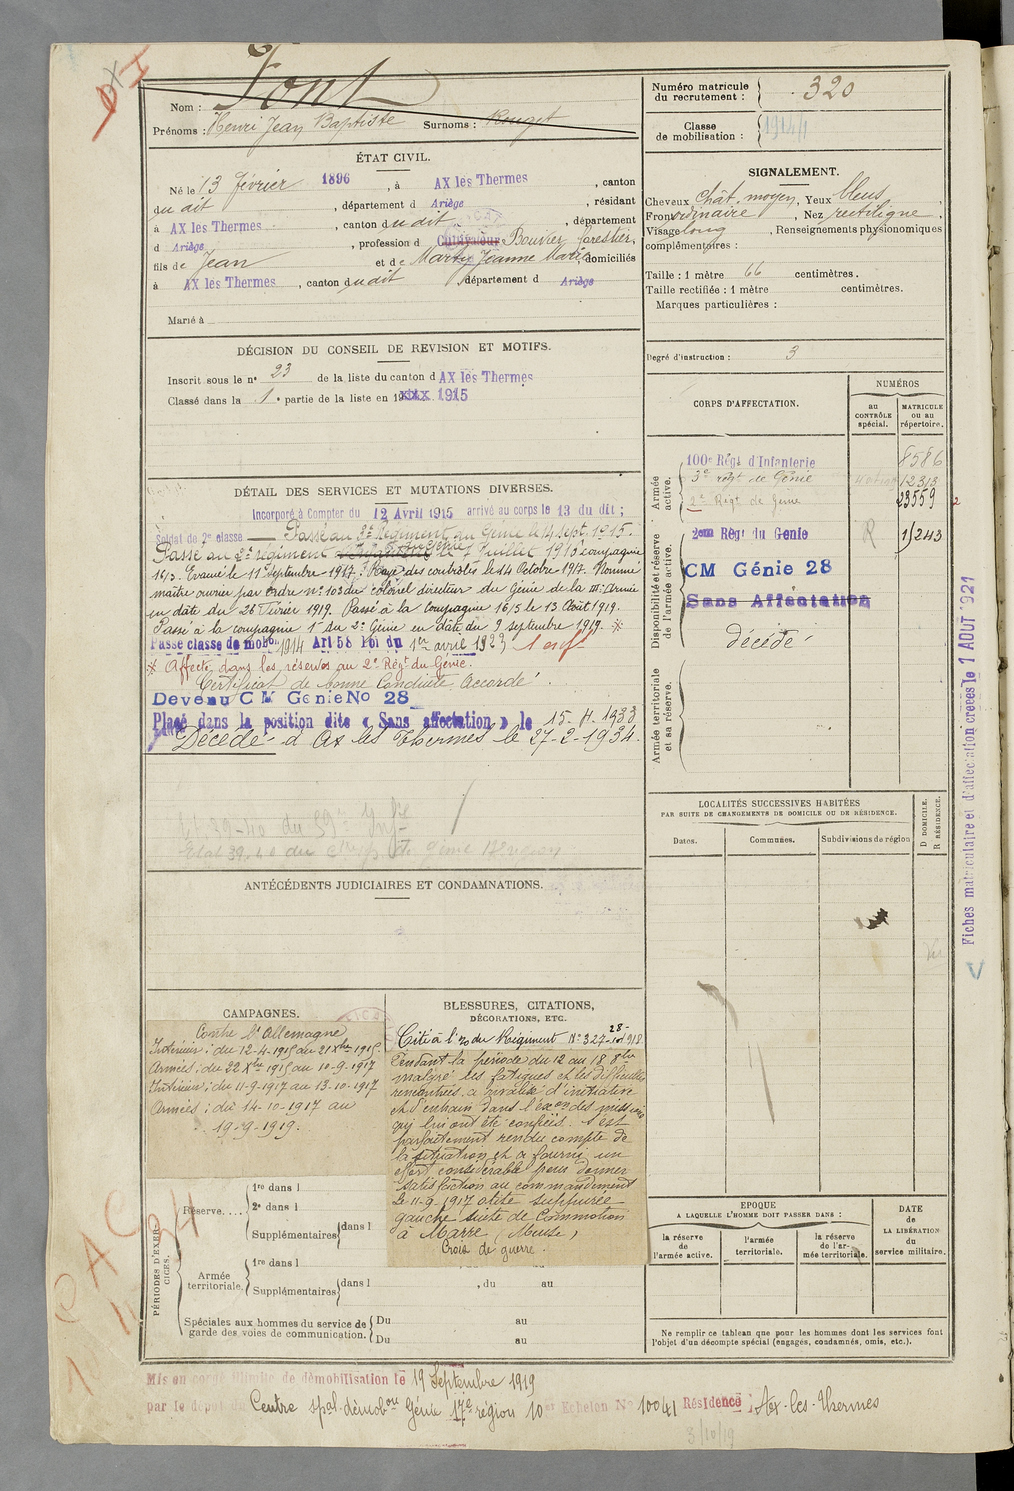 Nom : Font
Prénoms : Henri Jean Baptiste Surnoms : Rouget
Numéro matricule du recrutement : 320
Classe de mobilisation : 1914
ÉTAT CIVIL.
Né le 13 février 1896, à AX les Thermes, canton
du dit, département d Ariège, résidant
à AX les Thermes, canton dudit, département
d Ariège, profession d Cultivateur Bouvier forestier,
fils de Jean et de Marty Jeanne Marie, domiciliés
à AX les Thermes, canton dudit, département d Ariège
Marié à
SIGNALEMENT.
Cheveux chât. moyen, Yeux bleus,
Front ordinaire, Nez rectiligne,
Visage long, Renseignements physionomiques
complémentaires :
Taille : 1 mètre 66 centimètres.
Taille rectifiée : 1 mètre centimètres.
Marques particulières :
Degré d'instruction : 3
DÉCISION DU CONSEIL DE REVISION ET MOTIFS.
Inscrit sous le n° 23 de la liste du canton d AX les Thermes
Classé dans la 1e partie de la liste en 1915
DÉTAIL DES SERVICES ET MUTATIONS DIVERSES.
Incorporé à Compter du 12 Avril 1915 arrivé au corps le 13 du dit ;
Soldat de 2e classe — Passé au 3e Régiment du Génie le 14 sept. 1915.
Passé au 2e régiment du Génie le 7 Juillet 1916 compagnie
16/3. Evacué le 11 Septembre 1917. Rayé des contrôles le 14 Octobre 1917. Nommé
maître ouvrier par ordre n° 103 du colonel directeur du Génie de la III Armée
en date du 28 Février 1919. Passé à la compagnie 16/5 le 13 Août 1919.
Passé à la compagnie 1 du 2e Génie en date du 9 septembre 1919. *
Passé classe de mobon 1914 Art 58 Loi du 1er avril 1923 1 enft
* Affecté dans les réserves au 2e Régt du Génie.
Certificat de bonne Conduite Accordé.
Devenu CM Génie No 28
Placé dans la position dite « Sans affectation » le 15-4-1933
Décédé à Ax les Thermes le 27-2-1934.
CORPS D'AFFECTATION.
NUMÉROS
au CONTRÔLE spécial.
MATRICULE ou au répertoire.
Armée active.
100e Régt d'Infanterie 8586
3e régt de Génie 12313
2e Régt de Génie 23559
Disponibilité et réserve de l'armée active.
2eme Régt du Genie R 1243
CM Génie 28
Sans Affectation
décédé
Armée territoriale et sa réserve.
Fiches matriculaire et d'affectation créées le 1 AOUT 1921
LOCALITÉS SUCCESSIVES HABITÉES
PAR SUITE DE CHANGEMENTS DE DOMICILE OU DE RÉSIDENCE.
Dates. Communes. Subdivisions de région
D DOMICILE. R RÉSIDENCE.
ANTÉCÉDENTS JUDICIAIRES ET CONDAMNATIONS.
CAMPAGNES.
Contre l'Allemagne
Intérieur : du 12-4-1915 au 21 Xbre 1915.
Armées : du 22 Xbre 1915 au 10-9-1917
Intérieur : du 11-9-1917 au 13-10-1917
Armées : du 14-10-1917 au
19-9-1919.
BLESSURES, CITATIONS,
DÉCORATIONS, ETC.
Cité à l'o du Régiment N° 327 28-10-1918.
Pendant la période du 12 au 18 8bre
malgré les fatigues et les difficultés
rencontrées, a rivalisé d'initiative
et d'entrain dans l'exon des missions
qui lui ont été confiées. S'est
parfaitement rendu compte de
la situation et a fourni un
effort considérable pour donner
satisfaction au commandement
Le 11-9-1917 otite suppurée
gauche suite de Commotion
à Marre (Meuse)
Croix de guerre.
PÉRIODES D'EXERCICES.
Réserve.... 1re dans l
2e dans l
Supplémentaires dans l
Armée territoriale. 1re dans l
Supplémentaires dans l , du au
Spéciales aux hommes du service de garde des voies de communication. Du au
Du au
EPOQUE
A LAQUELLE L'HOMME DOIT PASSER DANS :
la réserve de l'armée active.
l'armée territoriale.
la réserve de l'armée territoriale.
DATE de LA LIBÉRATION du service militaire.
Ne remplir ce tableau que pour les hommes dont les services font
l'objet d'un décompte spécial (engagés, condamnés, omis, etc.).
Mis en congé illimité de démobilisation le 19 Septembre 1919
par le dépôt du Centre spal démobon Génie 17e région 10e Echelon No 10041 Résidence : Ax-les-Thermes
3/10/19